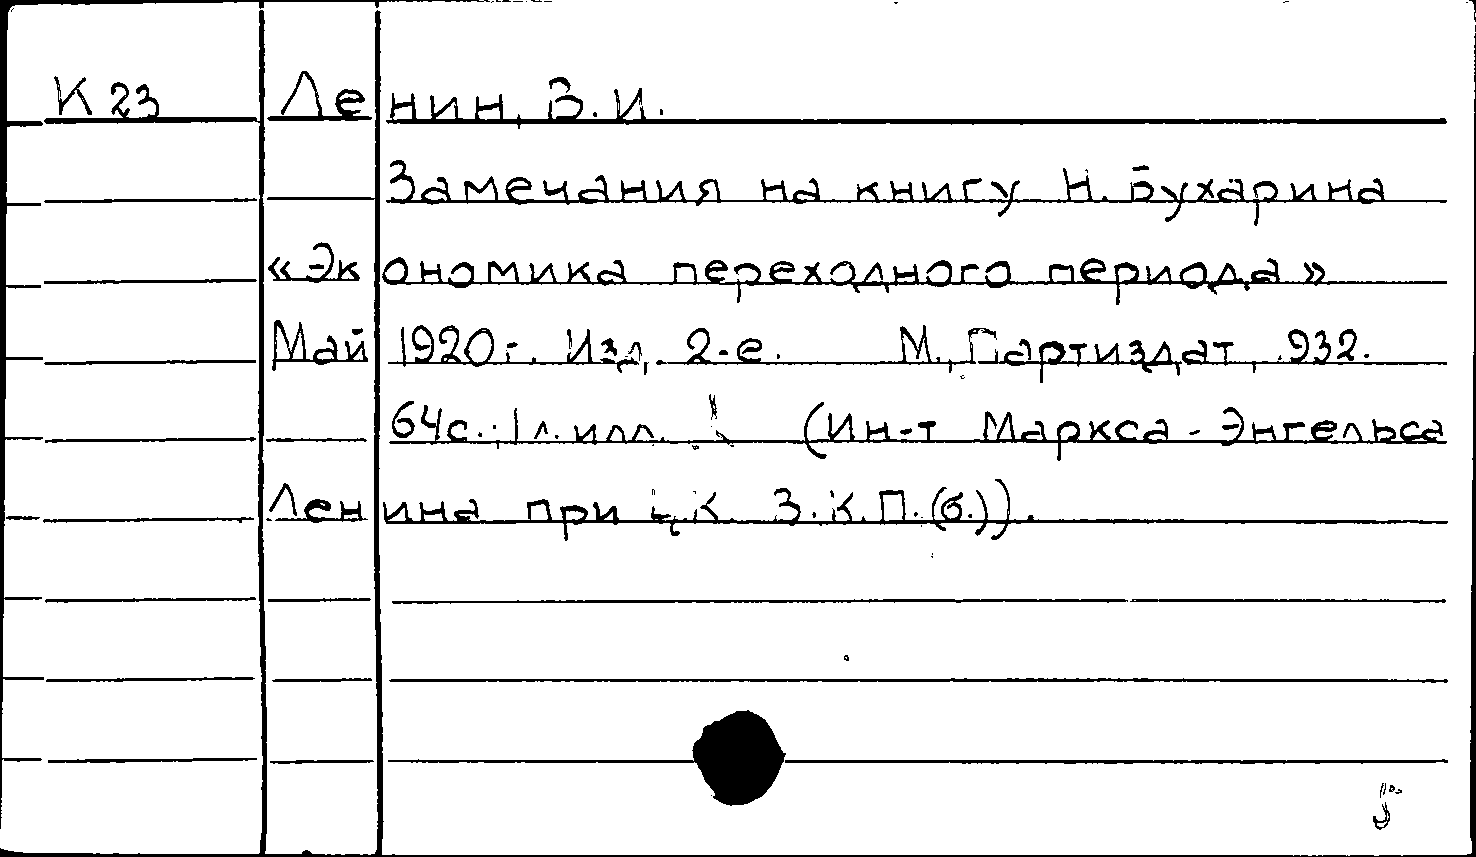 К 23 Ленин, В. И.
Замечания на книгу Н. Бухарина
«Экономика переходного периода»
Май 1920 г. Изд. 2-е. М., Партиздат, 932.
64 с.; 1 л. илл. (Ин-т Маркса - Энгельса
Ленина при ЦК В.К.П.(б.)).